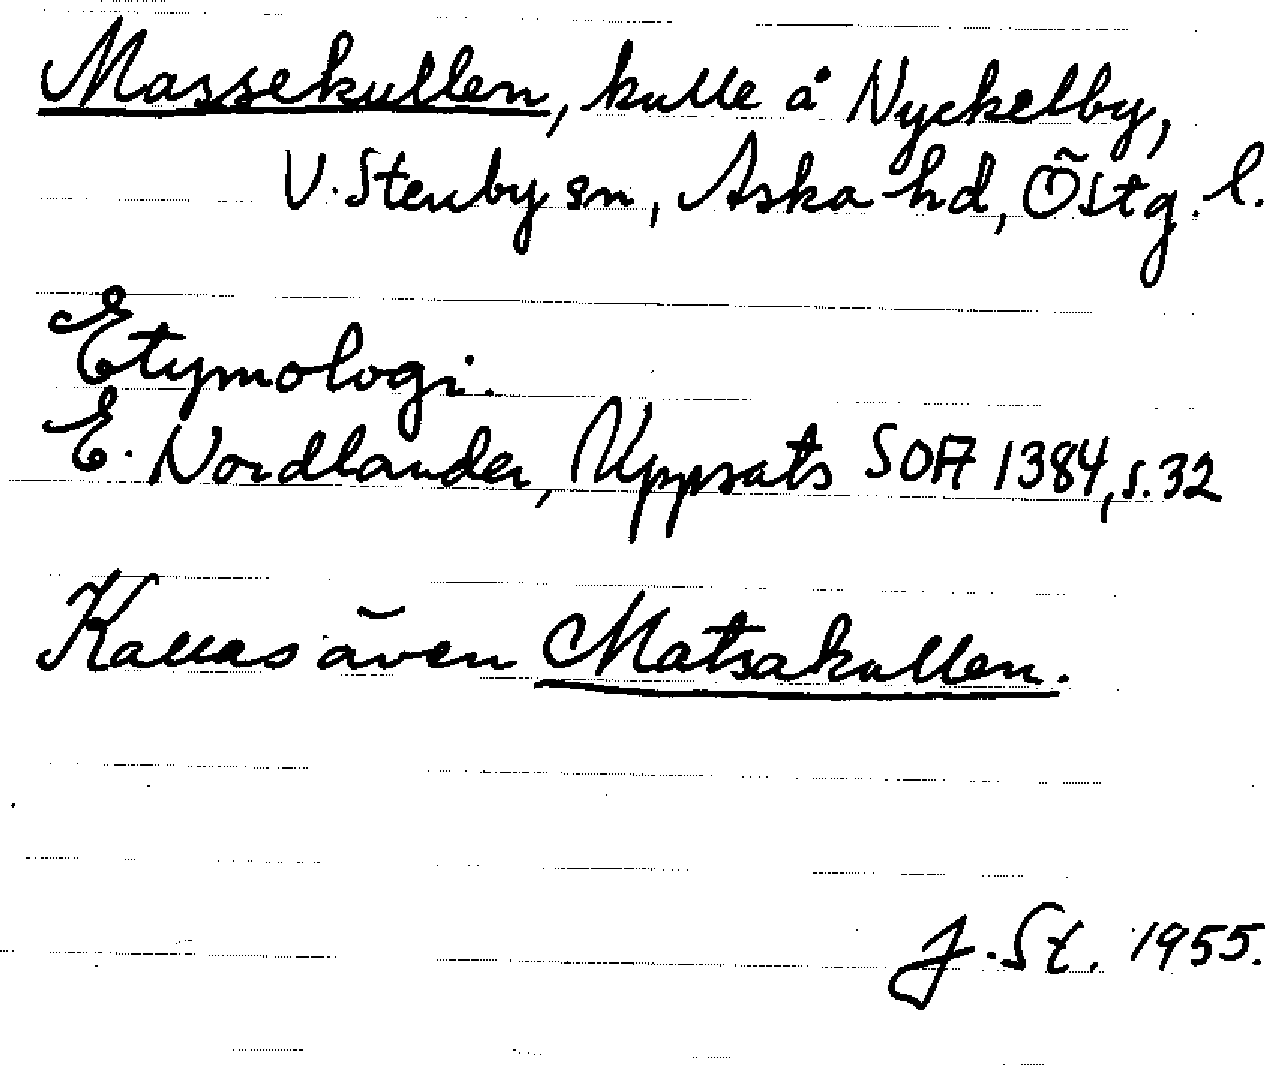 Massekullen, kulle å Nyckelby,
V. Stenby sn, Aska hd, Östg. l.
Etymologi.
E. Nordlander, Uppsats SOFA 1384, s. 32
Kallas även Matsakullen.
J. St. 1955.